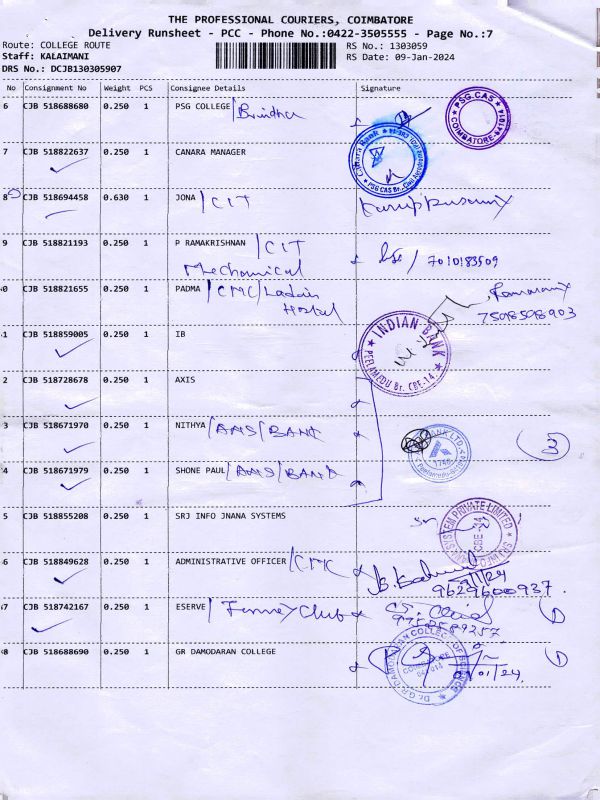 THE PROFESSIONAL COURIERS, COIMBATORE
Delivery Runsheet - PCC - Phone No.:0422-3505555 - Page No.:7
Route: COLLEGE ROUTE RS No.: 1303059
Staff: KALAIMANI RS Date: 09-Jan-2024
DRS No.: DCJB130305907
No Consignment No Weight PCS Consignee Details Signature
6 CJB 518688680 0.250 1 PSG COLLEGE /Brindha
PSG CAS COIMBATORE-641014
7 CJB 518822637 0.250 1 CANARA MANAGER
Canara Bank PSG CAS Br.,
8 CJB 518694458 0.630 1 JONA /CIT
9 CJB 518821193 0.250 1 P RAMAKRISHNAN /CIT
Mechanical 7010183509
0 CJB 518821655 0.250 1 PADMA /CMC/Ladies
Hostel 7598598903
1 CJB 518859005 0.250 1 IB
INDIAN BANK PEELAMEDU Br. CBE-14.
2 CJB 518728678 0.250 1 AXIS
3 CJB 518671970 0.250 1 NITHYA /AMS/BANK
BANK LTD. 3
4 CJB 518671979 0.250 1 SHONE PAUL /AMS/BANK
5 CJB 518855208 0.250 1 SRJ INFO JNANA SYSTEMS
SYSTEM PRIVATE LIMITED CBE-14
6 CJB 518849628 0.250 1 ADMINISTRATIVE OFFICER /CMC
9629600937.
7 CJB 518742167 0.250 1 ESERVE / Club
1
8 CJB 518688690 0.250 1 GR DAMODARAN COLLEGE
Dr.G.R.DAMODARAN COLLEGE OF SCIENCE COIMBATORE 641014
1